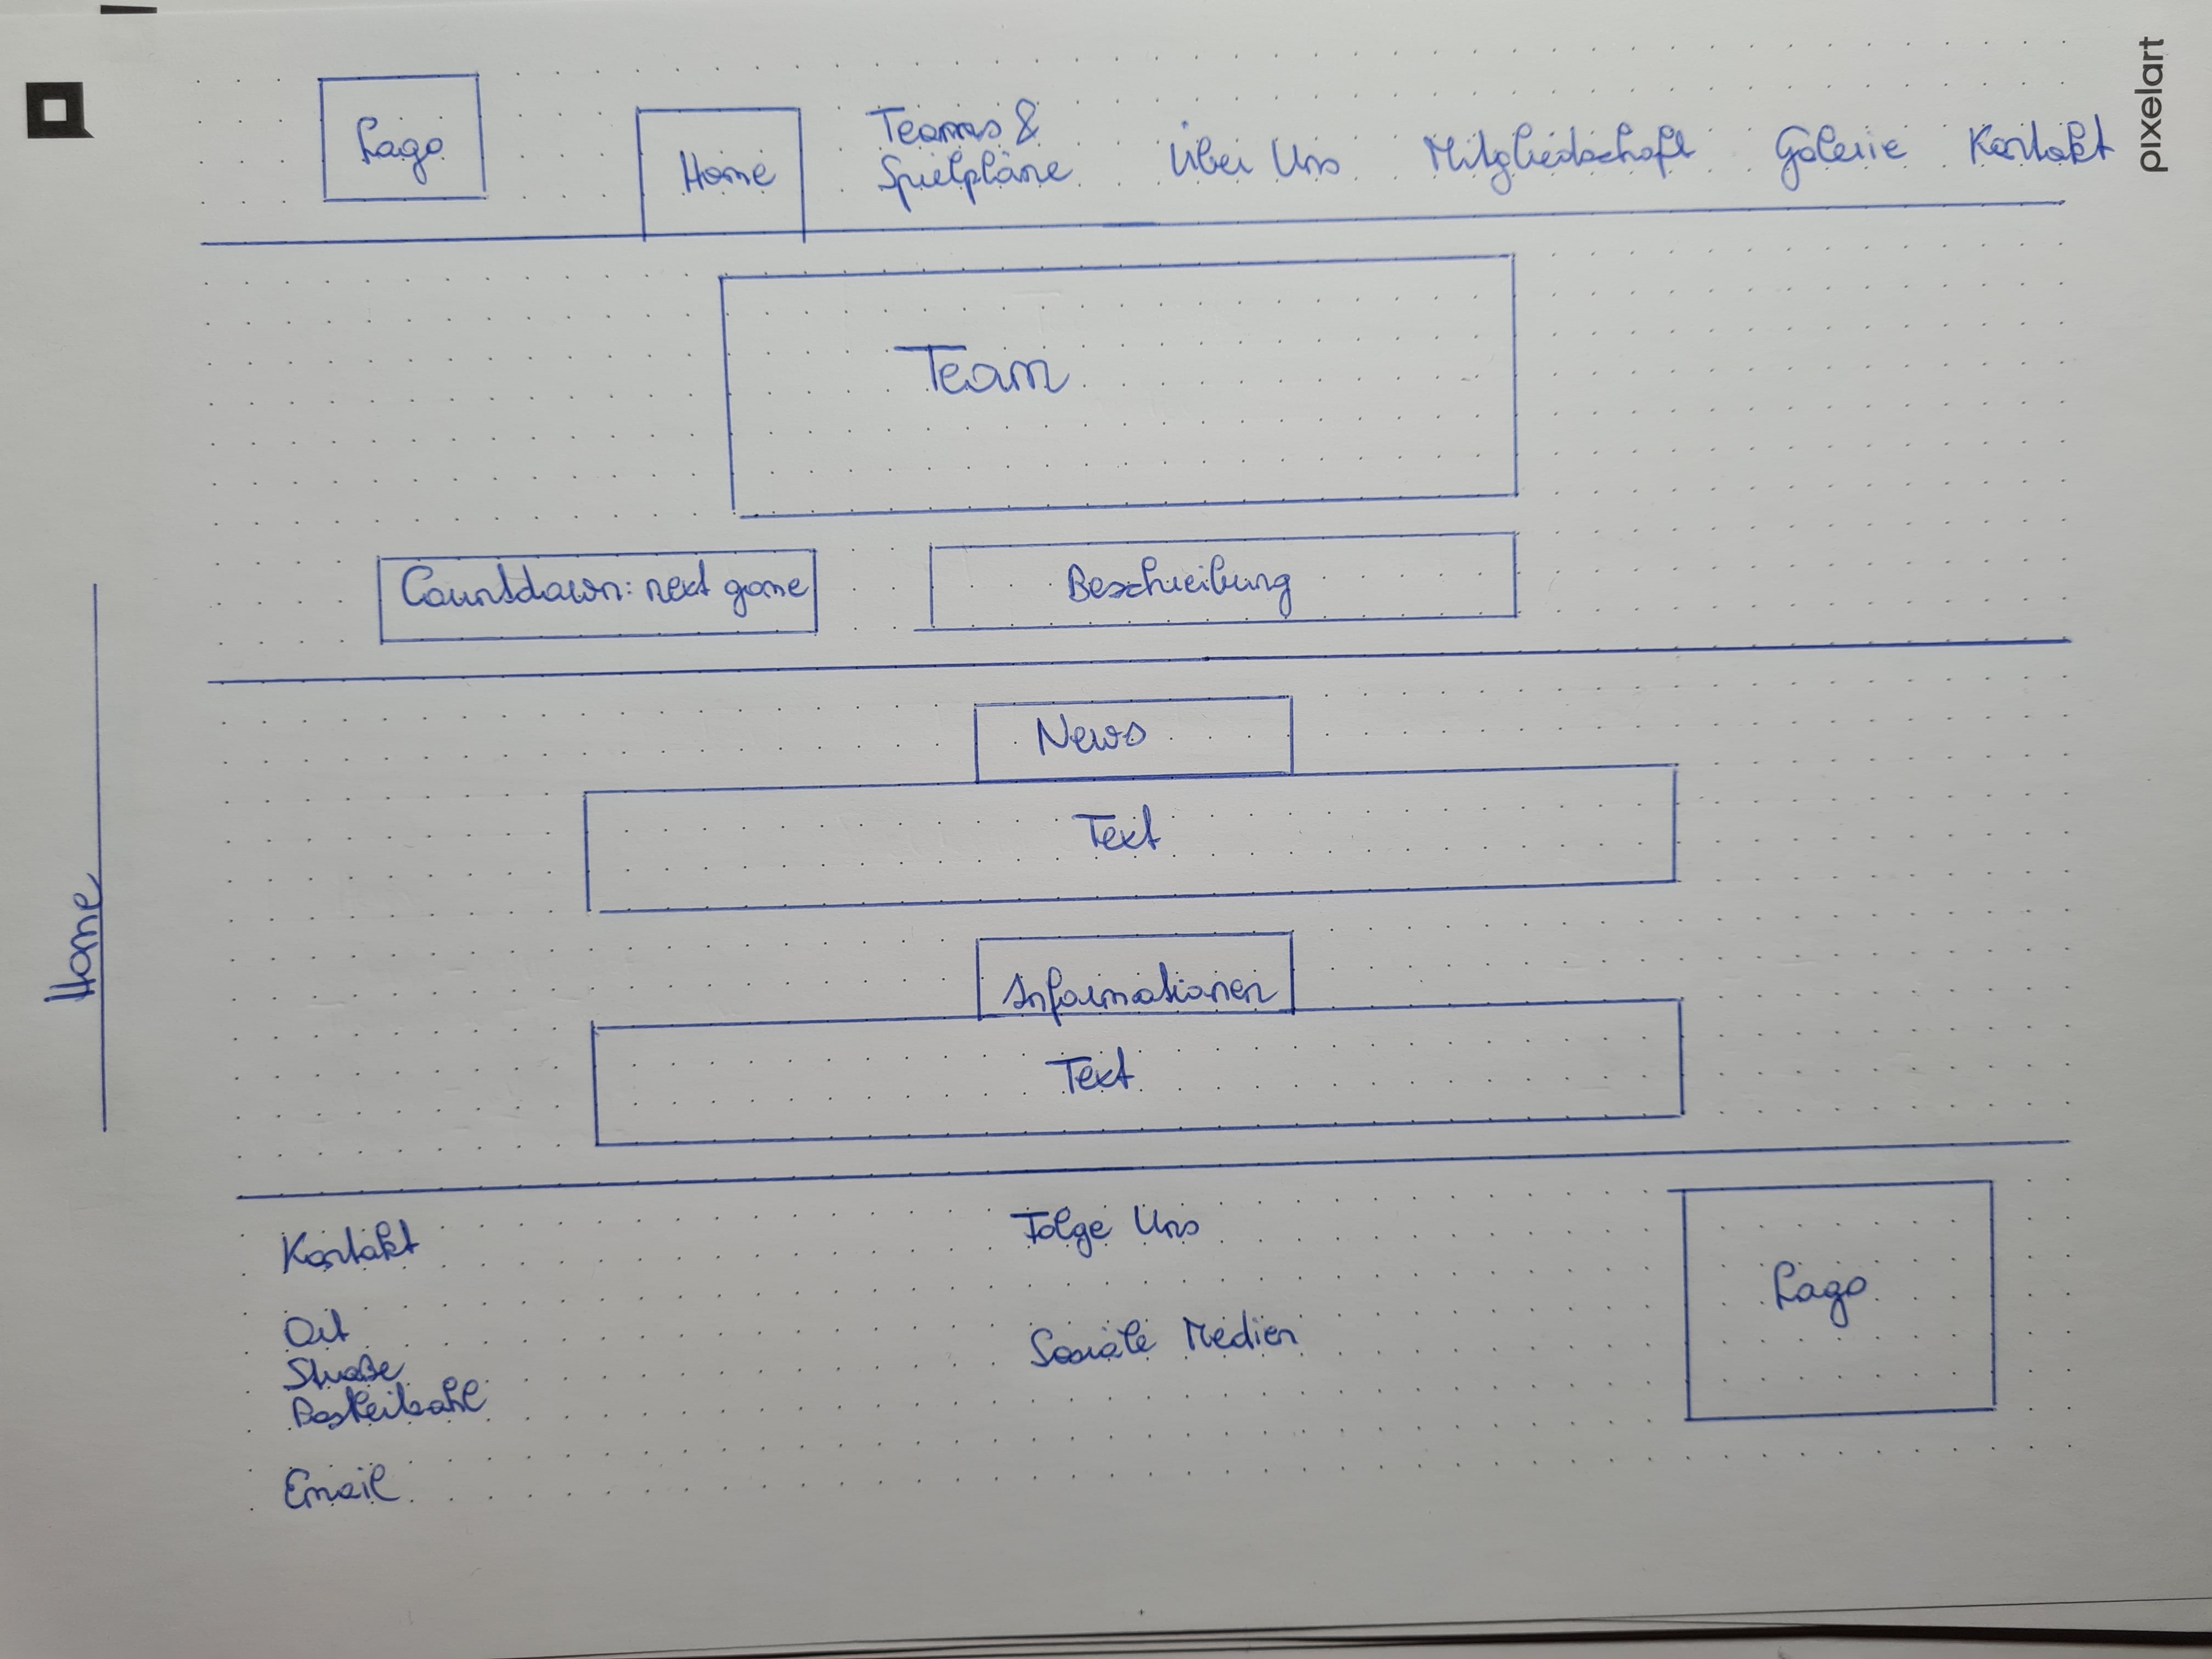 pixelart
Home
Logo
Home
Teams &
Spielpläne
Über Uns
Mitgliedschaft
Galerie
Kontakt
Team
Countdown: next game
Beschreibung
News
Text
Informationen
Text
Kontakt
Ort
Straße
Postleitzahl
Email
Folge Uns
Soziale Medien
Logo